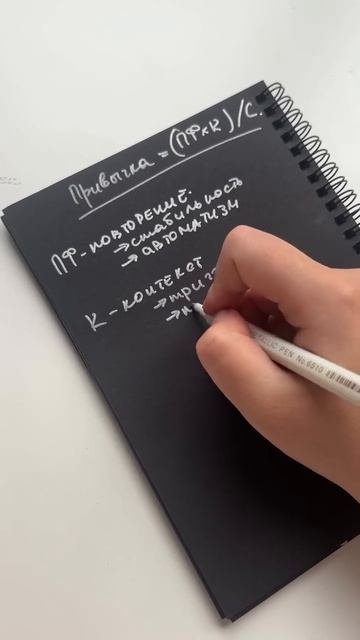 Привычка = (ПФ×К)/С.
ПФ - ПОВТОРЕНИЕ.
→ стабильность
→ АВТОМАТИЗМ
К - КОНТЕКСТ
→ триг
→
METALLIC PEN No.6510